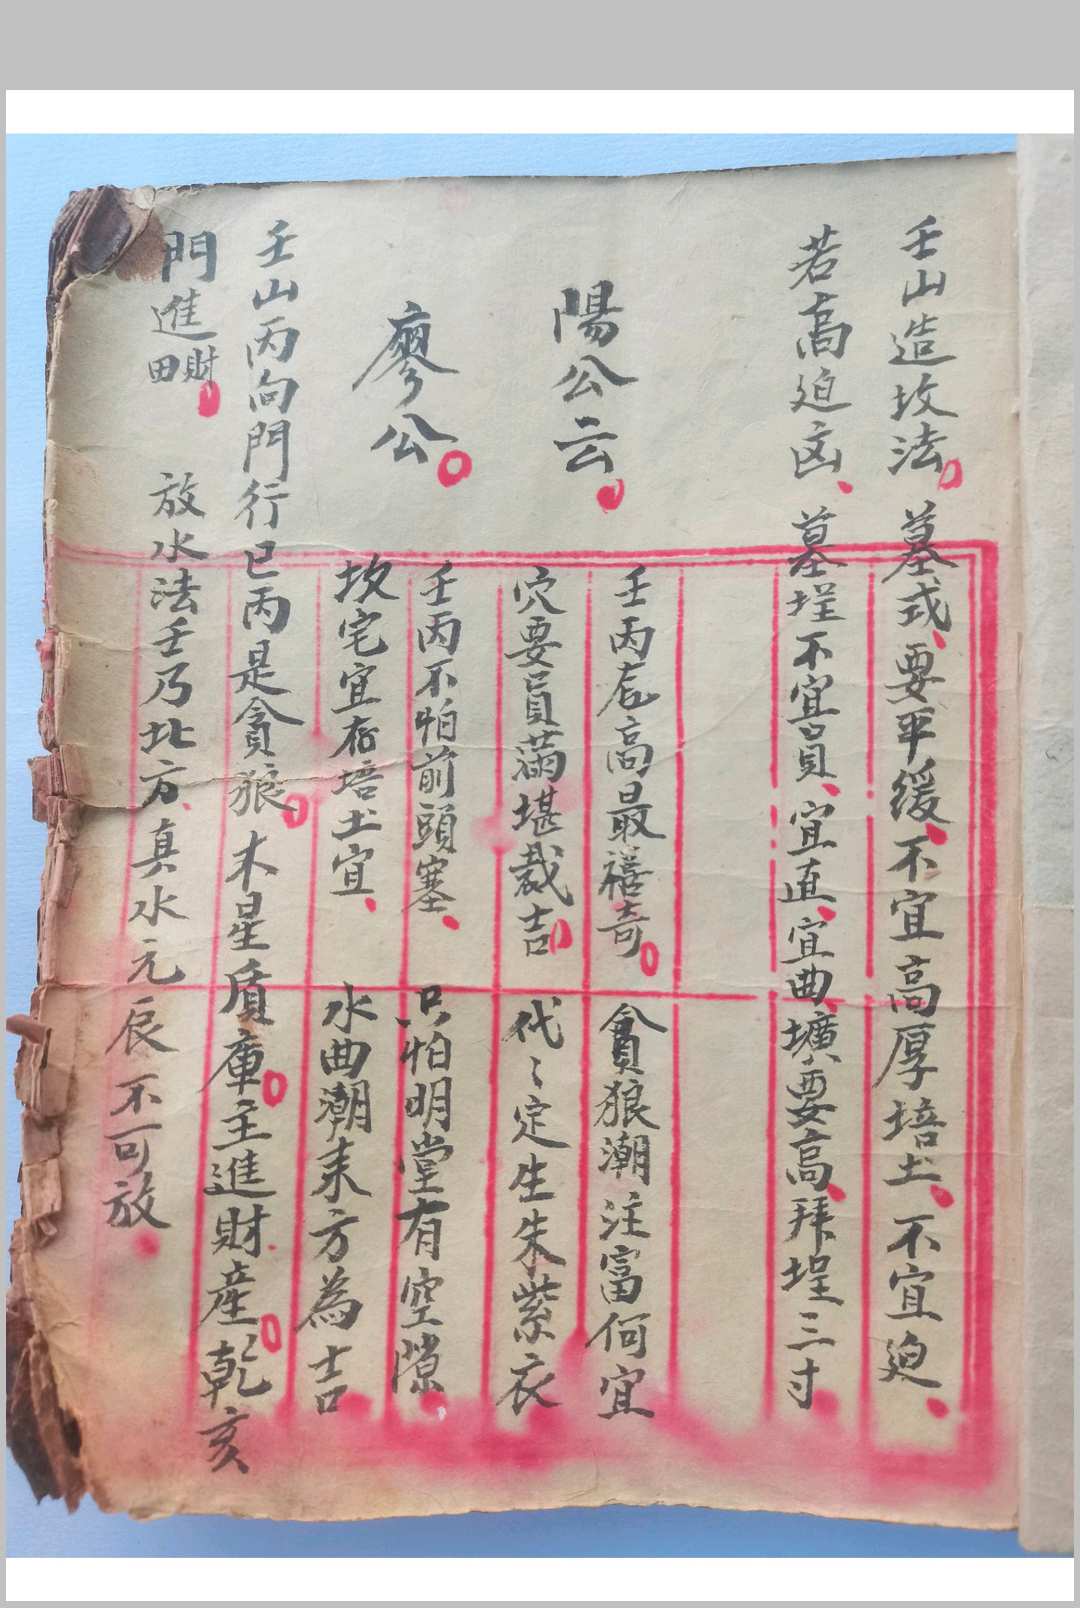 壬山造坟法墓式要平缓不宜高厚培土不宜迫
若高迫凶墓埕不宜員宜直宜曲壙要高拜埕三寸
陽公云
壬丙龙高最禧奇貪狼潮注富何宜
穴要員滿堪裁吉代〻定生朱紫衣
廖公
壬丙不怕前頭塞只怕明堂有空隙
坟宅宜存培土宜水曲潮来方為吉
壬山丙向門行巳丙是貪狼木星盾庫主進財產乾亥
門進財田放水法壬乃北方真水元辰不可放